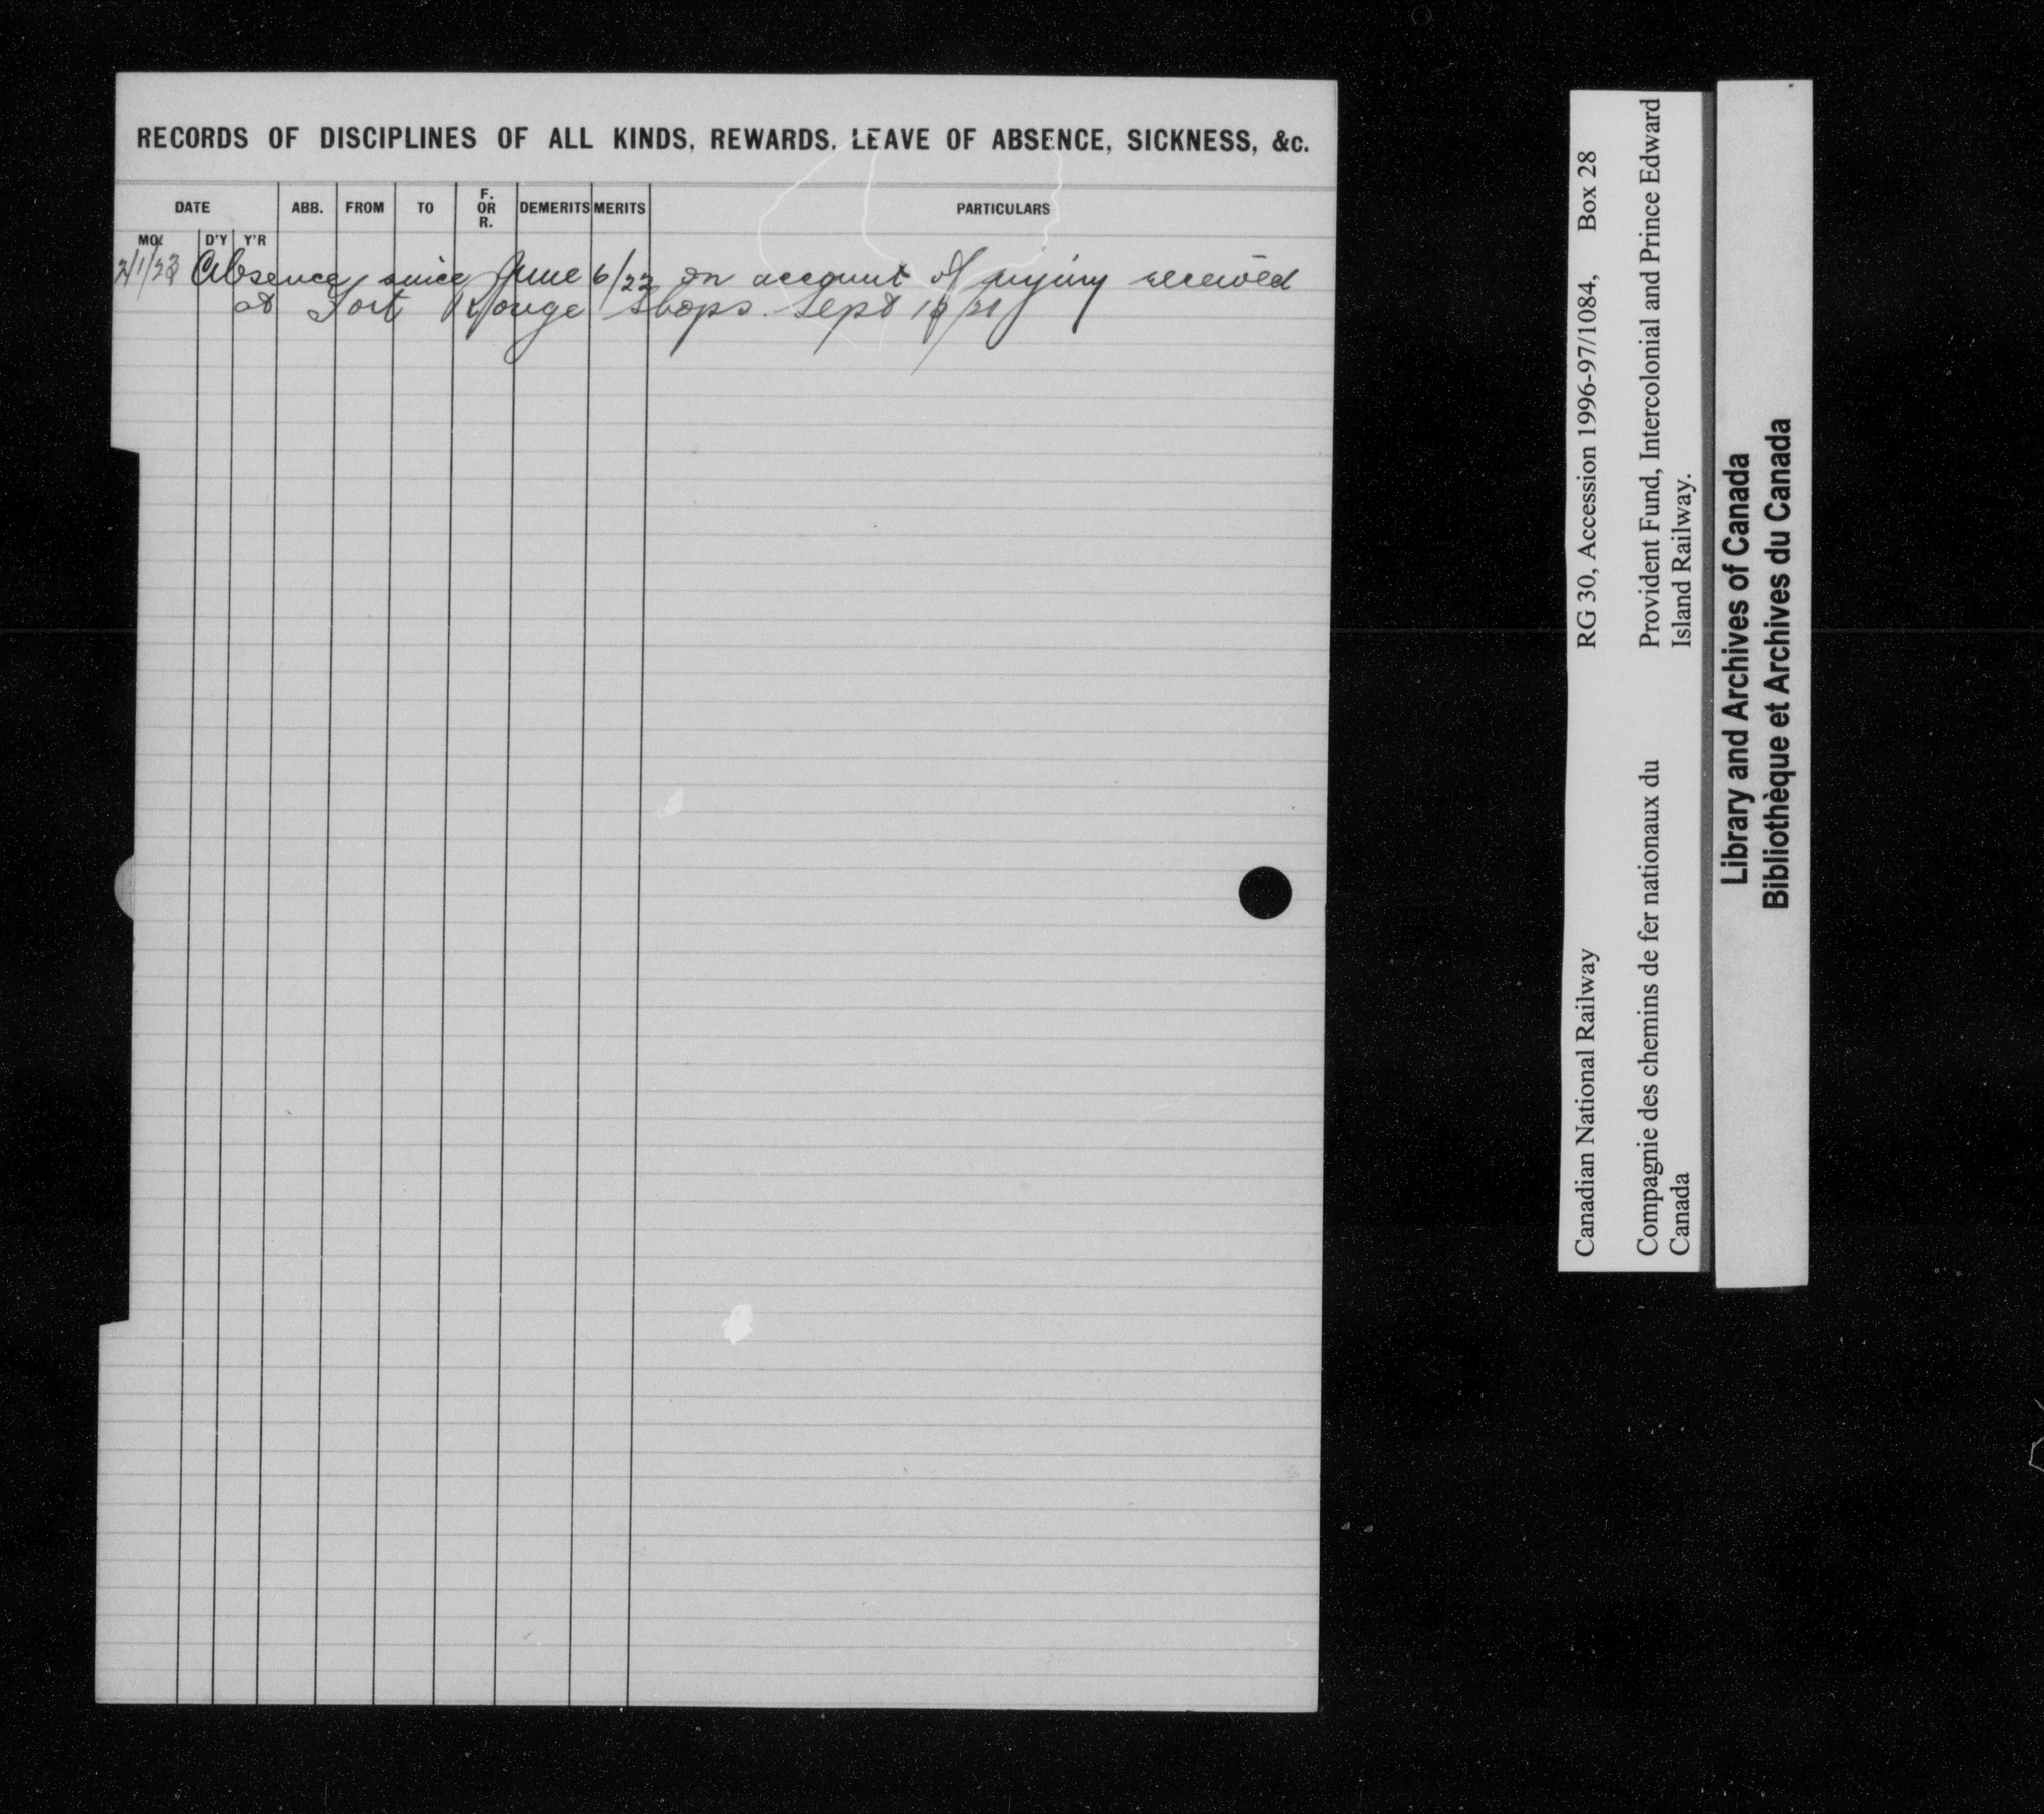 RECORDS OF DISCIPLINES OF ALL KINDS, REWARDS, LEAVE OF ABSENCE, SICKNESS, &c.
DATE ABB. FROM TO F. OR R. DEMERITS MERITS PARTICULARS
MO. D'Y Y'R
2/1/23 Absence since June 6/22 on account of injury received
at Fort Rouge Shops. Sept /21
RG 30, Accession 1996-97/1084, Box 28
Provident Fund, Intercolonial and Prince Edward
Island Railway.
Canadian National Railway
Compagnie des chemins de fer nationaux du
Canada
Library and Archives of Canada
Bibliothèque et Archives du Canada